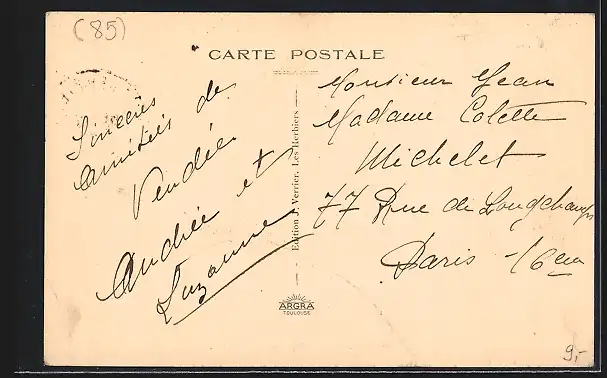 (85)
CARTE POSTALE
Sincères
amitiés de
Vendée
Andrée et
Suzanne
Edition J. Verrier, Les Herbiers
Monsieur Jean
Madame Colette
Michelet
77 Rue de Longchamp
Paris 16em
ARGRA
TOULOUSE
9,-